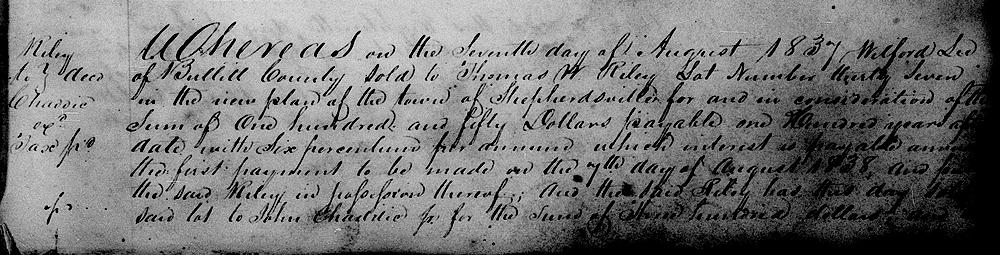 Riley
to deed
Chaddic
exd
Tax pd
pd
Whereas on the Seventh day of August 1837 Wilford Lee
of Bullitt County Sold to Thomas W. Riley Lot Number thirty Seven
in the new plan of the town of Shepherdsville for and in consideration of the
Sum of One hundred and fifty Dollars payable one Hundred years af
date with Six percentum per annum which interest is payable annu
the first payment to be made on the 7th day of August 1838, and
the said Riley in possession thereof; And the said Riley has this day
said lot to John Chaddic Jr for the Sum of Nine hundred dollars